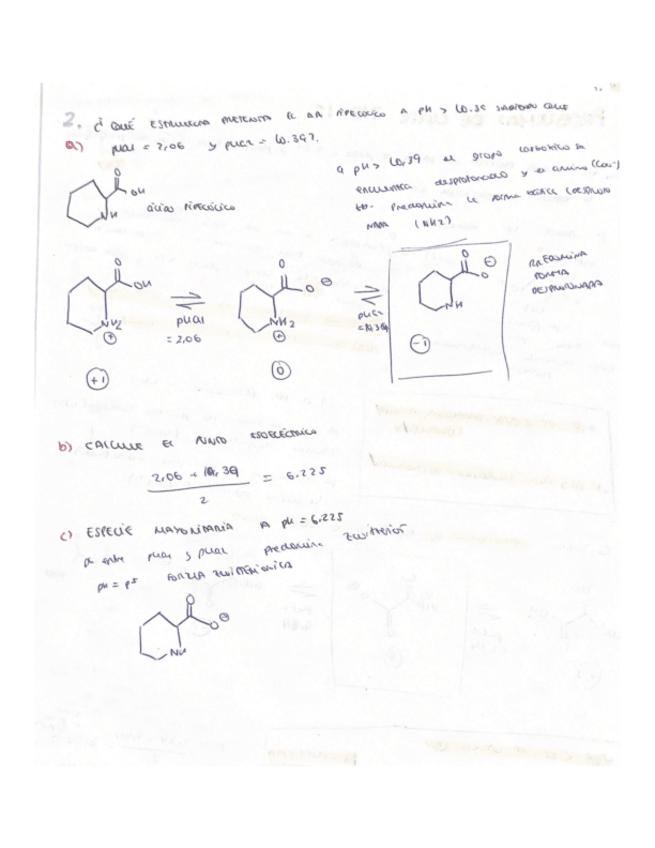 2. ¿ QUÉ ESTRUCTURA PRESENTA EL AA PIPECÓLICO A PH > 10.39 SABIENDO QUE
a) pKa1 = 2,06 y pKa2 = 10.39?
a pH > 10,39 el grupo carboxilo se
encuentra desprotonado y el amino (COO-)
tb. Predomina la forma básica (desproto
nada (NH2)
O
OH
NH
ácido PIPECÓLICO
O
OH
NH2
+
+1
pKa1
= 2,06
O
O ⊖
NH2
+
0
pKa2
=10,39
O
O ⊖
NH
-1
PREDOMINA
FORMA
DESPROTONADA
b) CALCULE EL PUNTO ISOELÉCTRICO
2,06 + 10,39
2
= 6.225
c) ESPECIE MAYORITARIA A pH = 6.225
entre pKa1 y pKa2 predomina zwitterión
pH = pI FORMA ZWITTERIONICA
O
O ⊖
NH